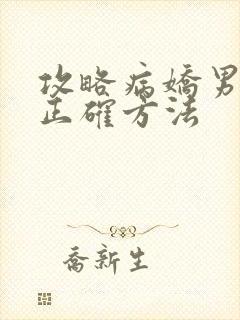 攻略病嬌男
正確方法
喬新生